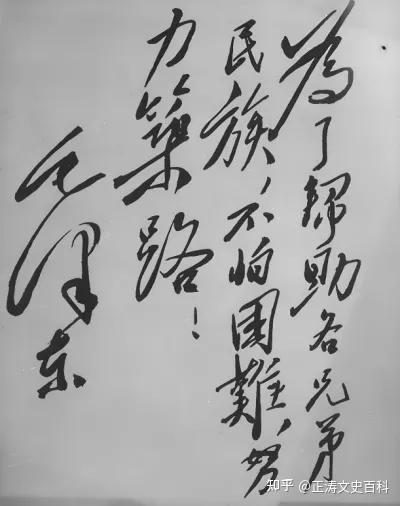 为了帮助各兄弟
民族，不怕困難，努
力築路！
毛泽东
知乎 @正涛文史百科